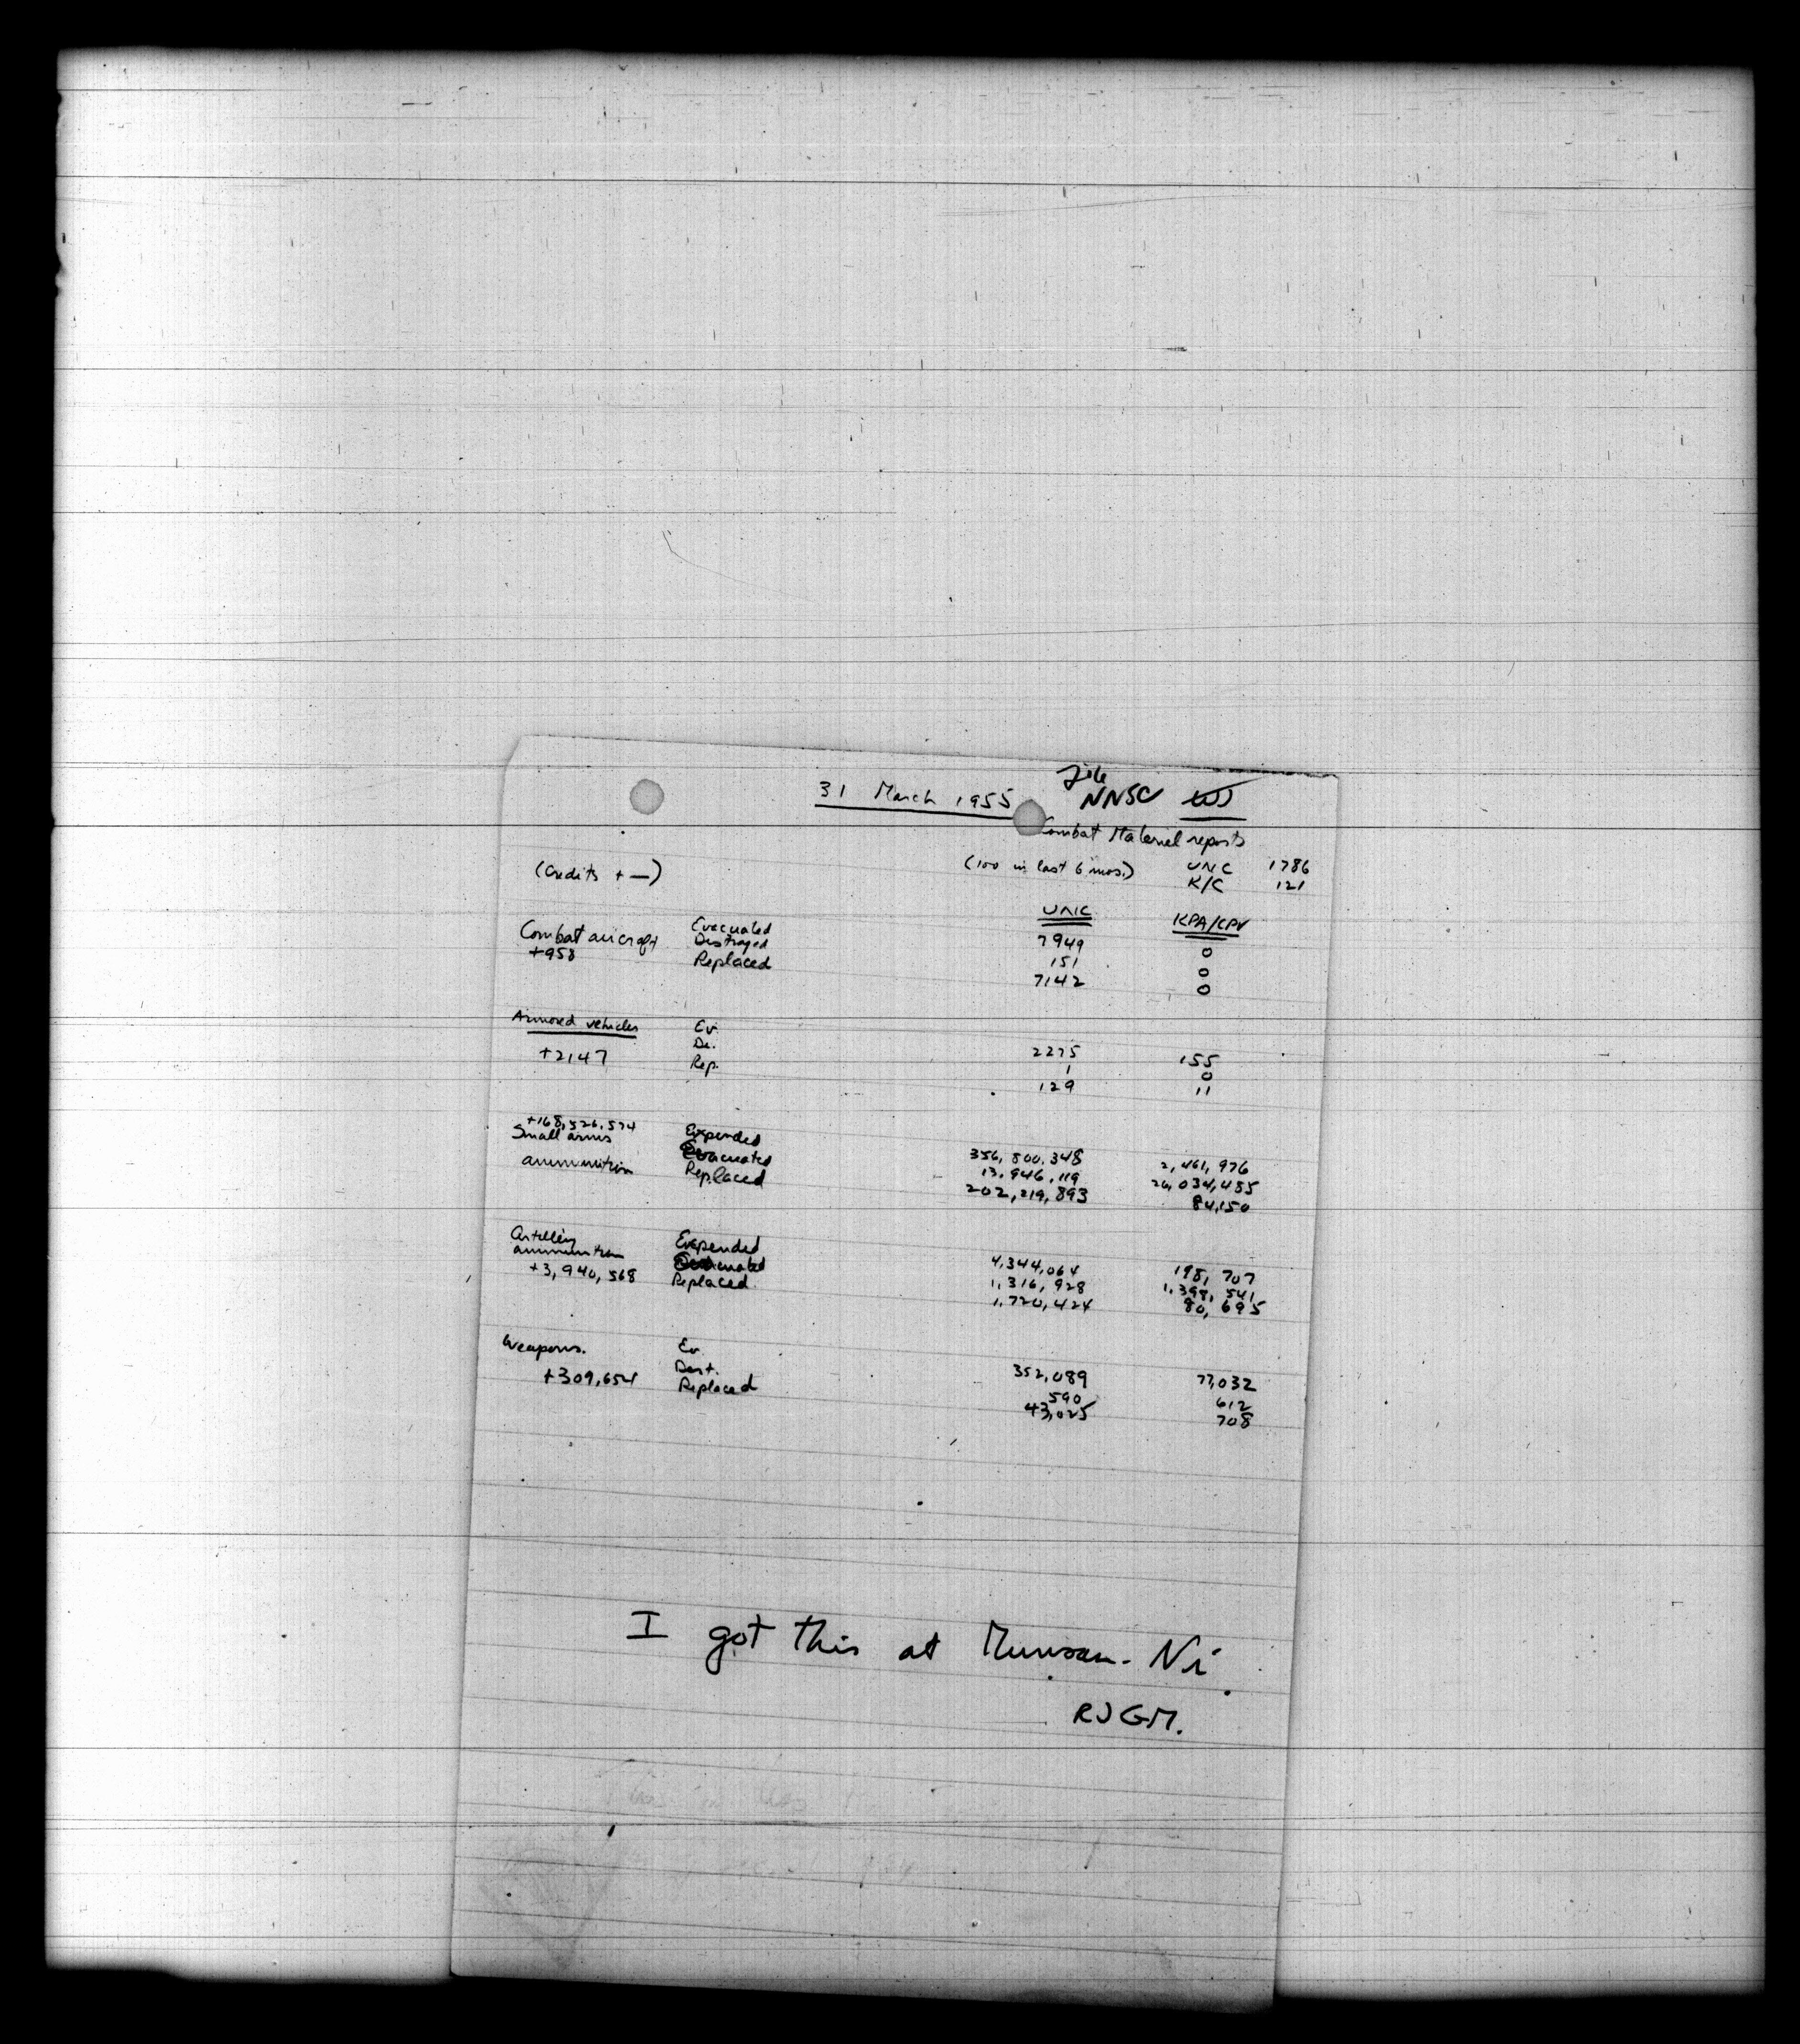 File
31 March 1955 NNSC
Combat Materiel reports
(Credits + —) (100 in last 6 mos.) UNC 1786
K/C 121
UNC KPA/CPV
Combat aircraft Evacuated 7949 0
+958 Destroyed 151 0
Replaced 7142 0
Armored vehicles Ev. 2275 155
+2147 De. 1 0
Rep. 129 11
+168,526,574
Small arms Expended 356,800,348 2,461,976
ammunition Evacuated 13,946,119 26,034,455
Replaced 202,219,893 84,150
Artillery Expended 4,344,064 198,707
ammunition Evacuated 1,316,928 1,398,541
+3,940,568 Replaced 1,720,424 80,695
Weapons. Ev. 352,089 77,032
+309,654 Dest. 590 612
Replaced 43,025 708
I got this at Munsan-Ni
RJGM.